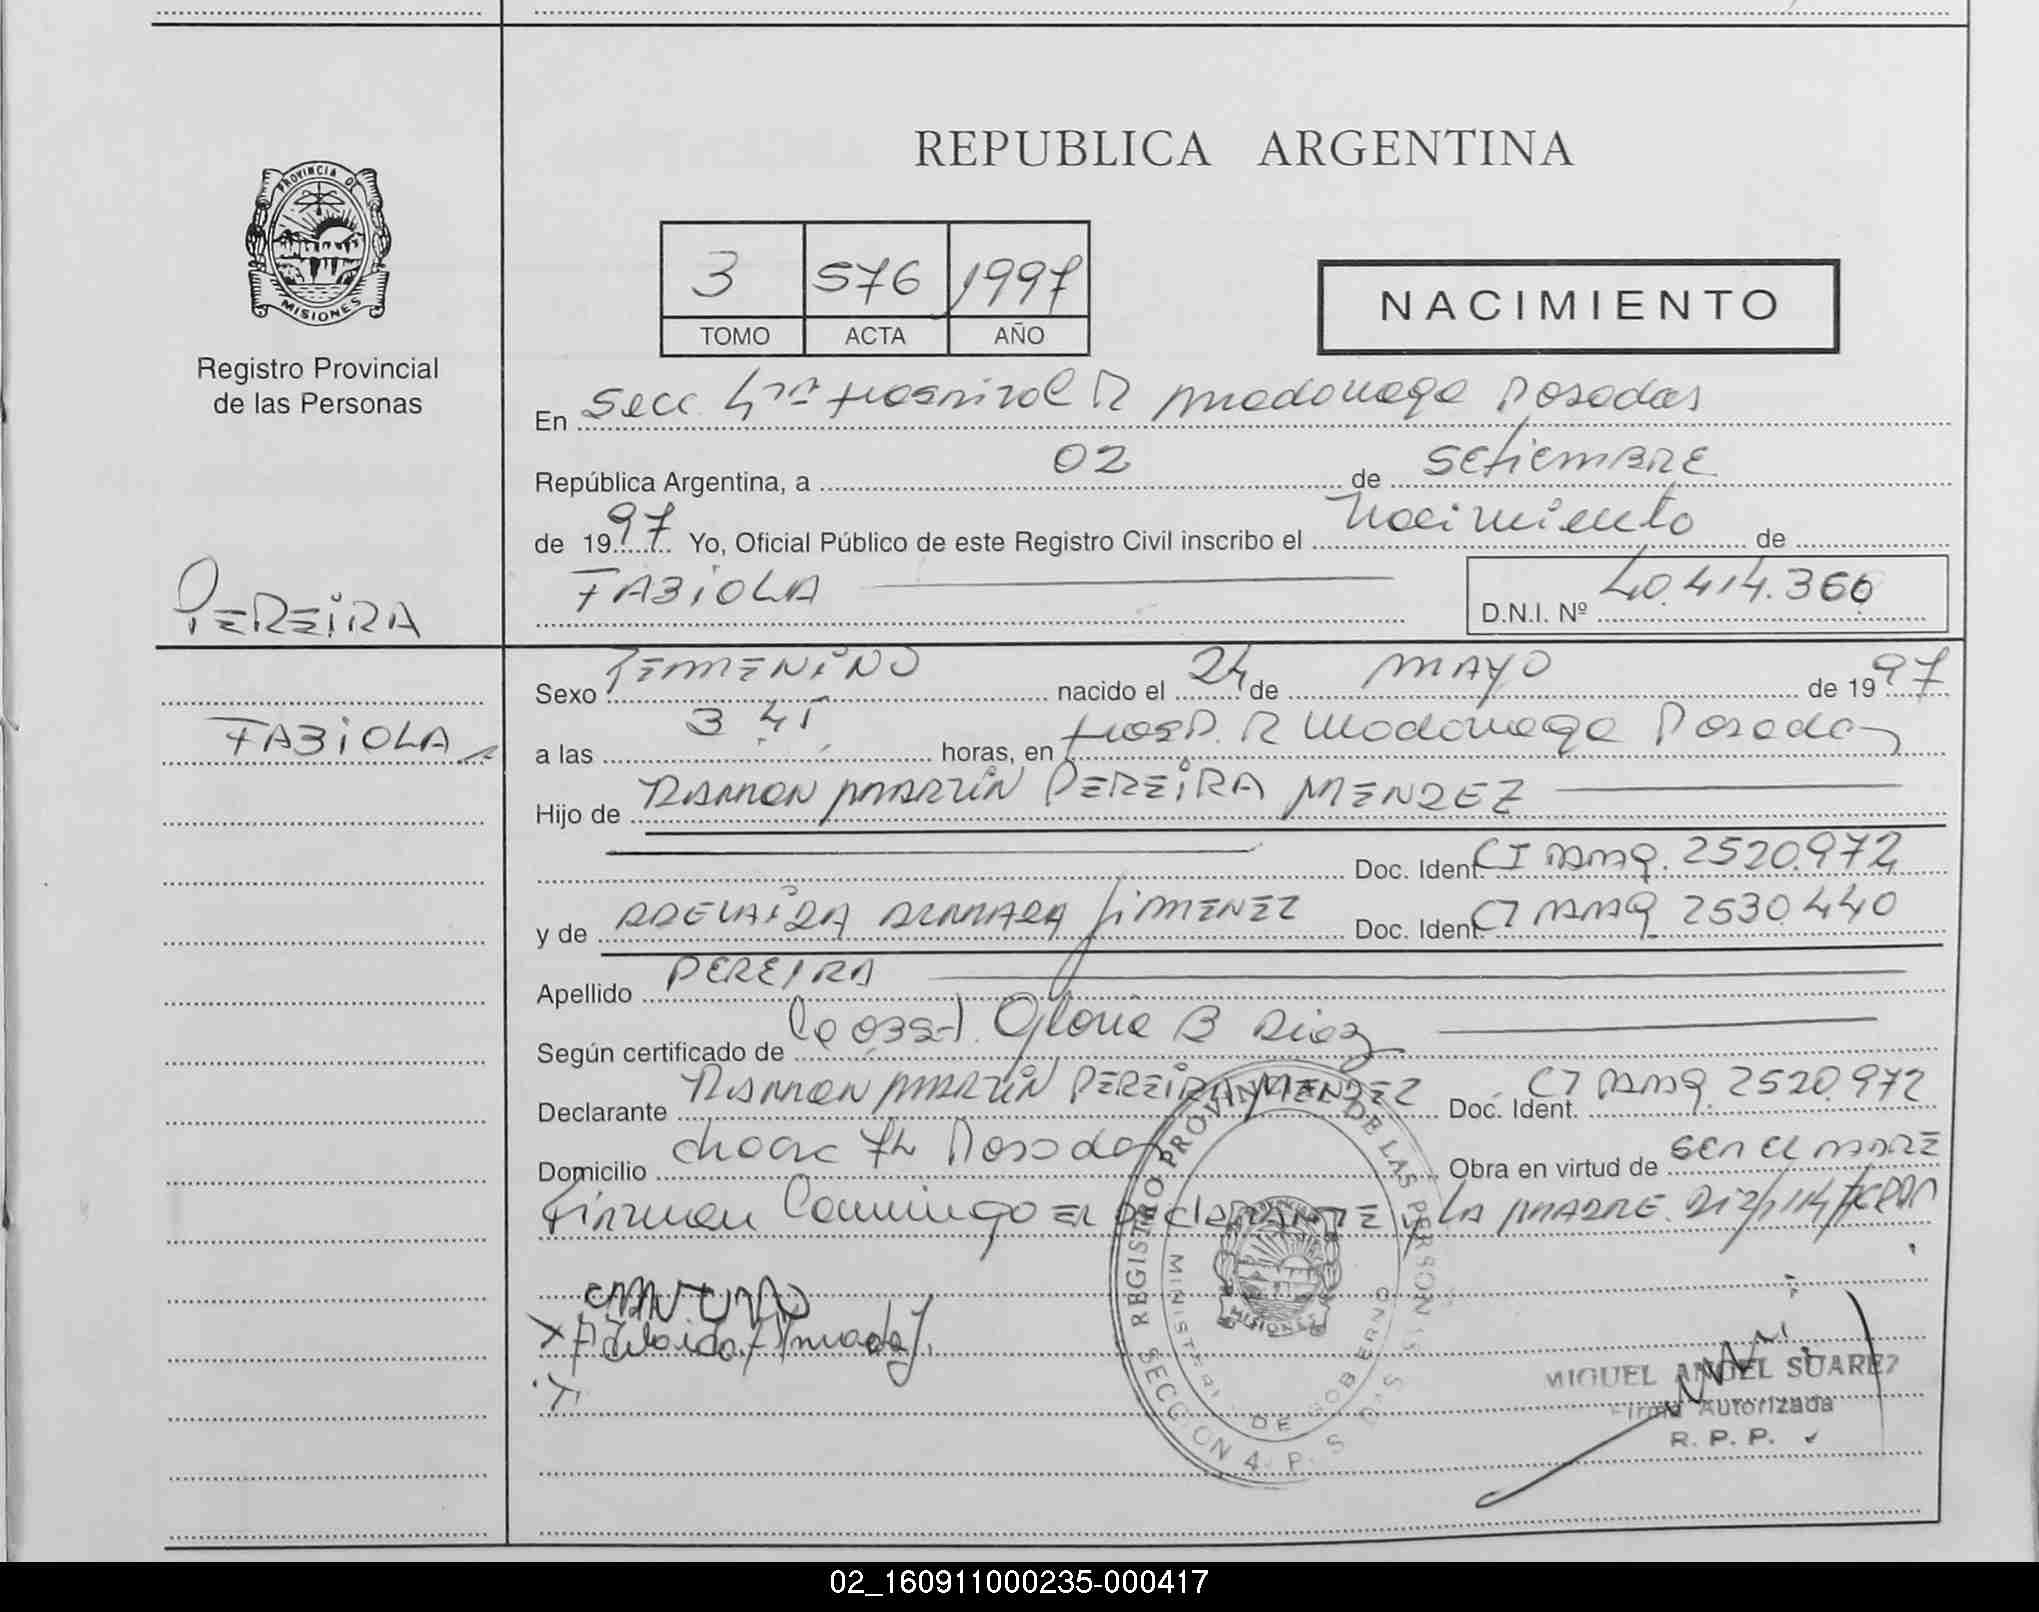 REPUBLICA ARGENTINA
PROVINCIA DE
MISIONES
Registro Provincial
de las Personas
3 576 1997
TOMO ACTA AÑO
NACIMIENTO
En Secc 4ta Hospital R Madariaga Posadas
República Argentina, a 02 de Setiembre
de 1997 Yo, Oficial Público de este Registro Civil inscribo el nacimiento de
FABiOLA
D.N.I. Nº 40.414.366
PEREiRA
FABiOLA
Sexo FEMENiNO nacido el 24 de MAYO de 1997
a las 3 45 horas, en Hosp. R Madariaga Posadas
Hijo de RAMON MARTiN PEREiRA MENDEZ
Doc. Ident. CI 2520.972
y de ADELAiDA AMADA JiMENEZ Doc. Ident. CI 2530.440
Apellido PEREIRA
Según certificado de Gloria B Diaz
Declarante RAMON MARTiN PEREiRA MENDEZ Doc. Ident. CI 2520.972
Domicilio Posadas Obra en virtud de ser el PADRE
Firman Conmigo El DeclARANTE y LA MADRE.
Adelaida Amada J.
REGISTRO PROVINCIAL DE LAS PERSONAS
MINISTERIO DE GOBIERNO
MISIONES
SECCION 4
MIGUEL ANGEL SUAREZ
Firma Autorizada
R. P. P.
02_160911000235-000417